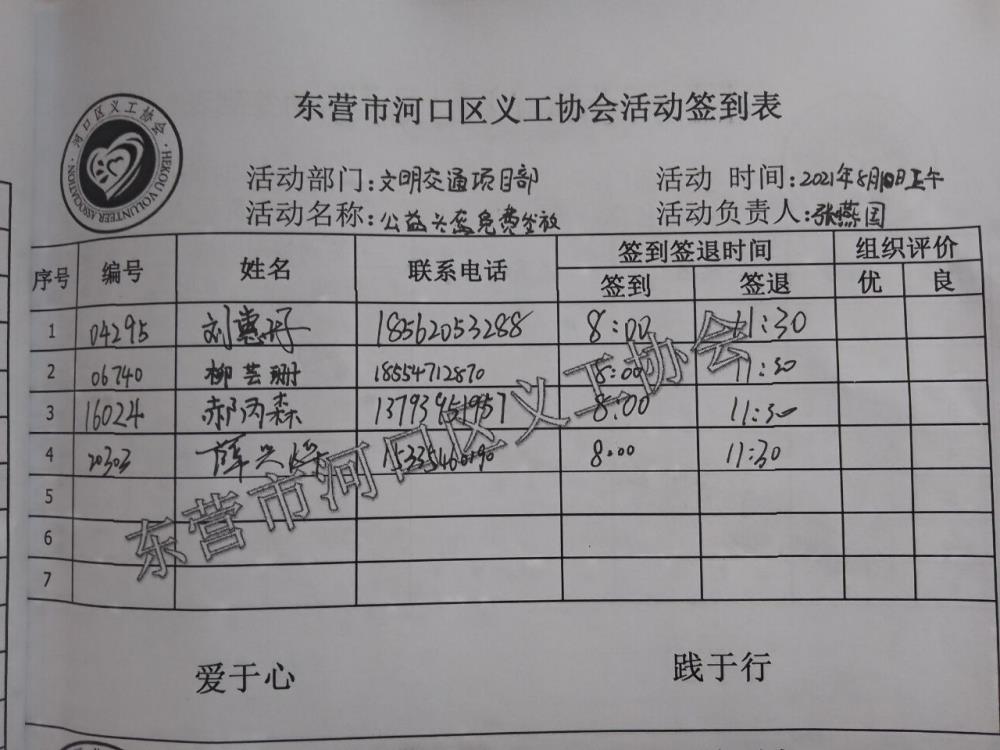 东营市河口区义工协会活动签到表
河口区义工协会
HEKOU VOLUNTEER ASSOCIATION
活动部门:文明交通项目部 活动 时间:2021年8月10日上午
活动名称:公益头盔免费发放 活动负责人:张燕国
序号 编号 姓名 联系电话 签到签退时间 组织评价
签到 签退 优 良
1 04295 刘惠好 18562053288 8:00 11:30
2 06740 柳芸珊 18554712870 8:00 11:30
3 16024 郝丙森 13793851957 8:00 11:30
4 20303 薛兴 8:00 11:30
5
6
7
东营市河口区义工协会
爱于心 践于行